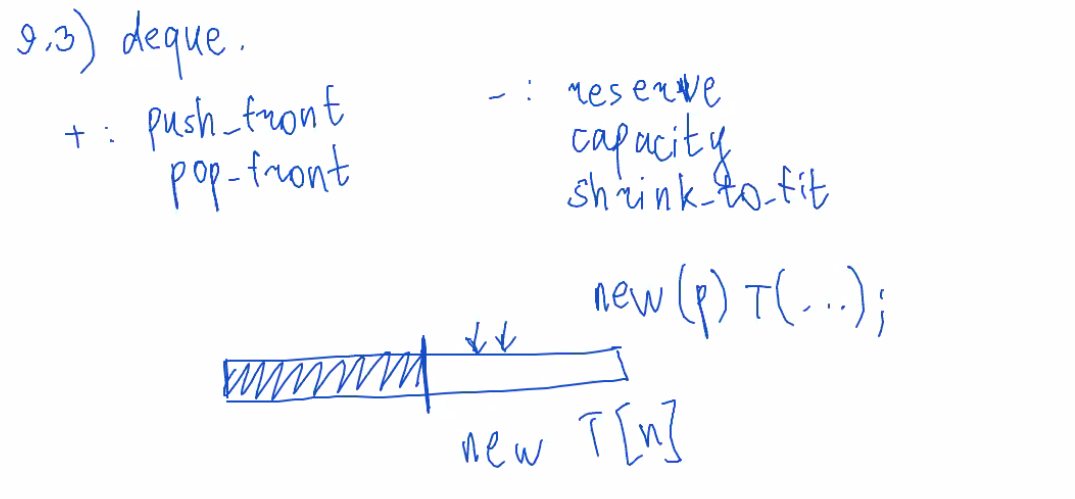 9.3) deque.
+ : push_front
pop_front
- : reserve
capacity
shrink_to_fit
new (p) T(...);
new T[n]